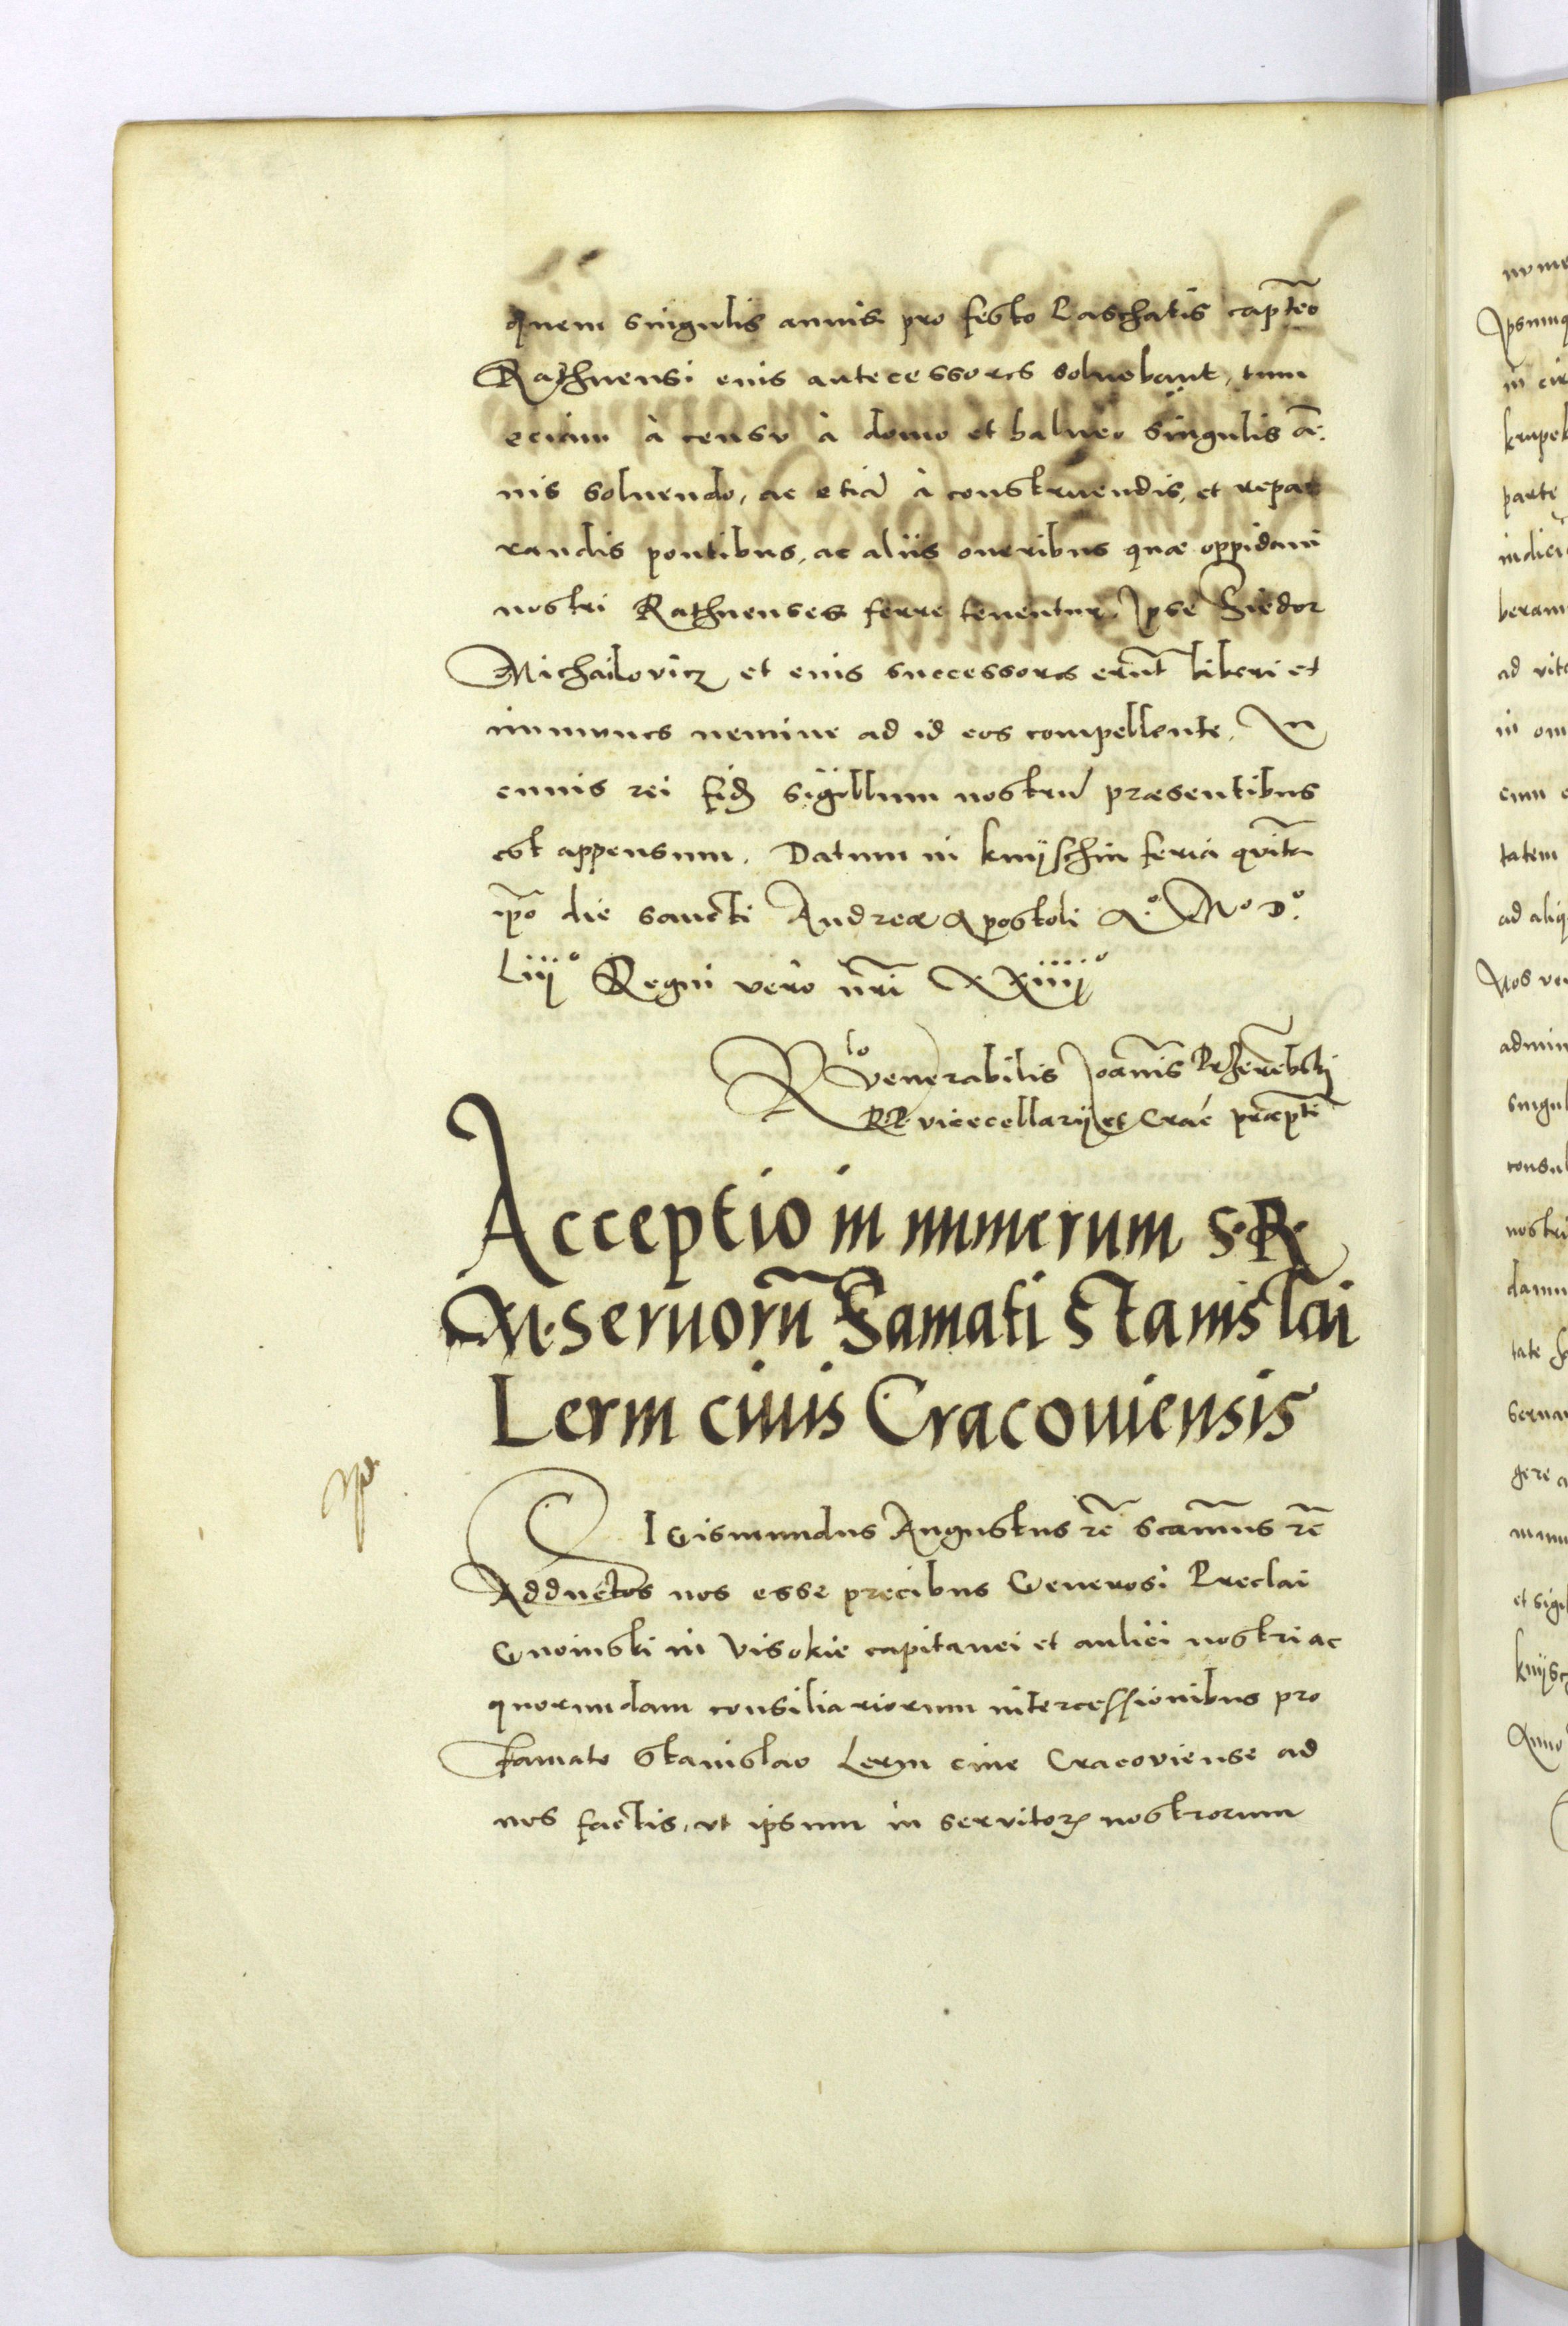 quem singulis annis pro festo Paschatis captēo
Rathnensi euis antecessores soluebant, tum
eciam à censu à domo et balneo singulis ā:
nis soluendo, ac etiā à construendis, et repar
randis pontibus, ac aliis oneribus quae oppidani
nostri Rathnenses ferre tenentur. Ipse Fiedor
Michailovicz et euis successores erūt liberi et
immunes nemine ad id eos compellente. In
cuuis rei fid sigillum nostrū praesentibus
est appensum. Datum in knyschin feria quīta
ipō die sancti Andreae Apostoli Aº. Mº Dº.
Liijº Regni vero nrī XXiiijº
Rlō venerabilis Joannis Przerembski
R.P. vicecellarij et Crac praepti
Acceptio in numerum S.R.
M. seruorū Famati Stanislai
Lerm ciuis Cracouiensis
SIGismundus Augustus rē scamus rē
Adductos nos esse precibus Generosi Preclai
Gnoinski in Visokie capitanei et aulici nostri ac
quorundam consiliariorum intercessionibus pro
Famato Stanislao Lerm ciue Cracoviense ad
nos factis, ut ipsum in servitorꝝ nostrorum